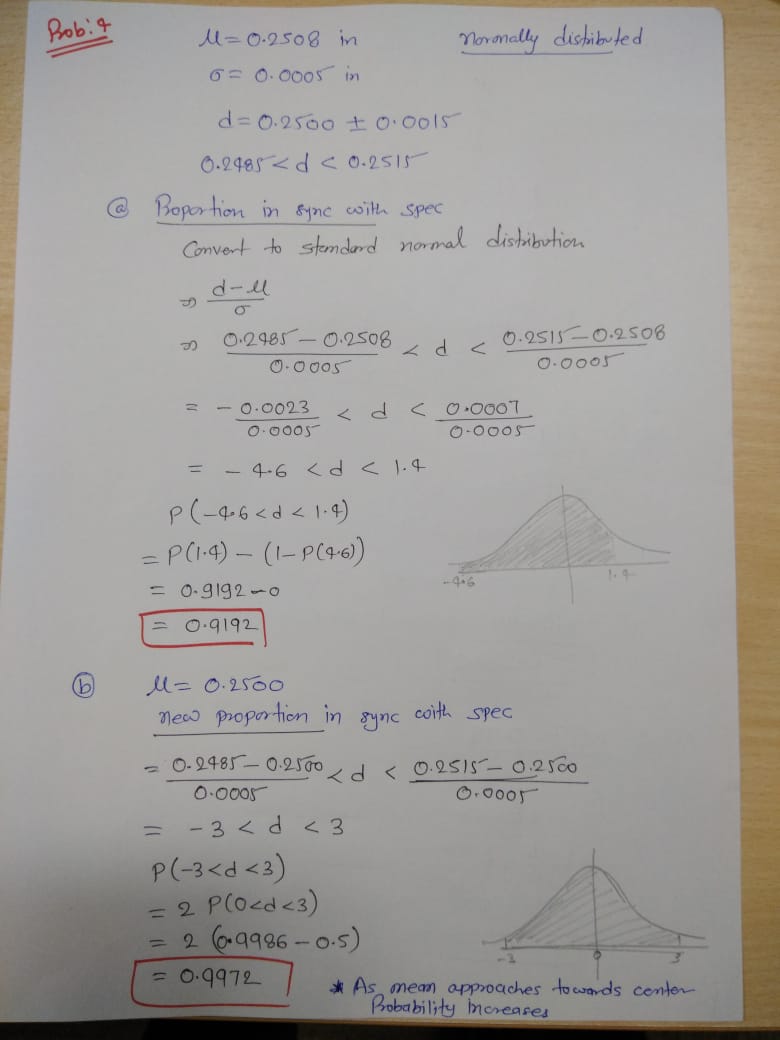 Prob: 4
μ = 0.2508 in
normally distributed
σ = 0.0005 in
d = 0.2500 ± 0.0015
0.2485 < d < 0.2515
ⓐ Proportion in sync with spec
Convert to standard normal distribution
⇒ (d-μ)/σ
⇒ (0.2485 - 0.2508)/0.0005 < d < (0.2515 - 0.2508)/0.0005
= -0.0023/0.0005 < d < 0.0007/0.0005
= -4.6 < d < 1.4
P(-4.6 < d < 1.4)
= P(1.4) - (1 - P(4.6))
= 0.9192 - 0
= 0.9192
-4.6 1.4
ⓑ μ = 0.2500
new proportion in sync with spec
= (0.2485 - 0.2500)/0.0005 < d < (0.2515 - 0.2500)/0.0005
= -3 < d < 3
P(-3 < d < 3)
= 2 P(0 < d < 3)
= 2 (0.9986 - 0.5)
= 0.9972
-3 0 3
* As mean approaches towards center
Probability Increases